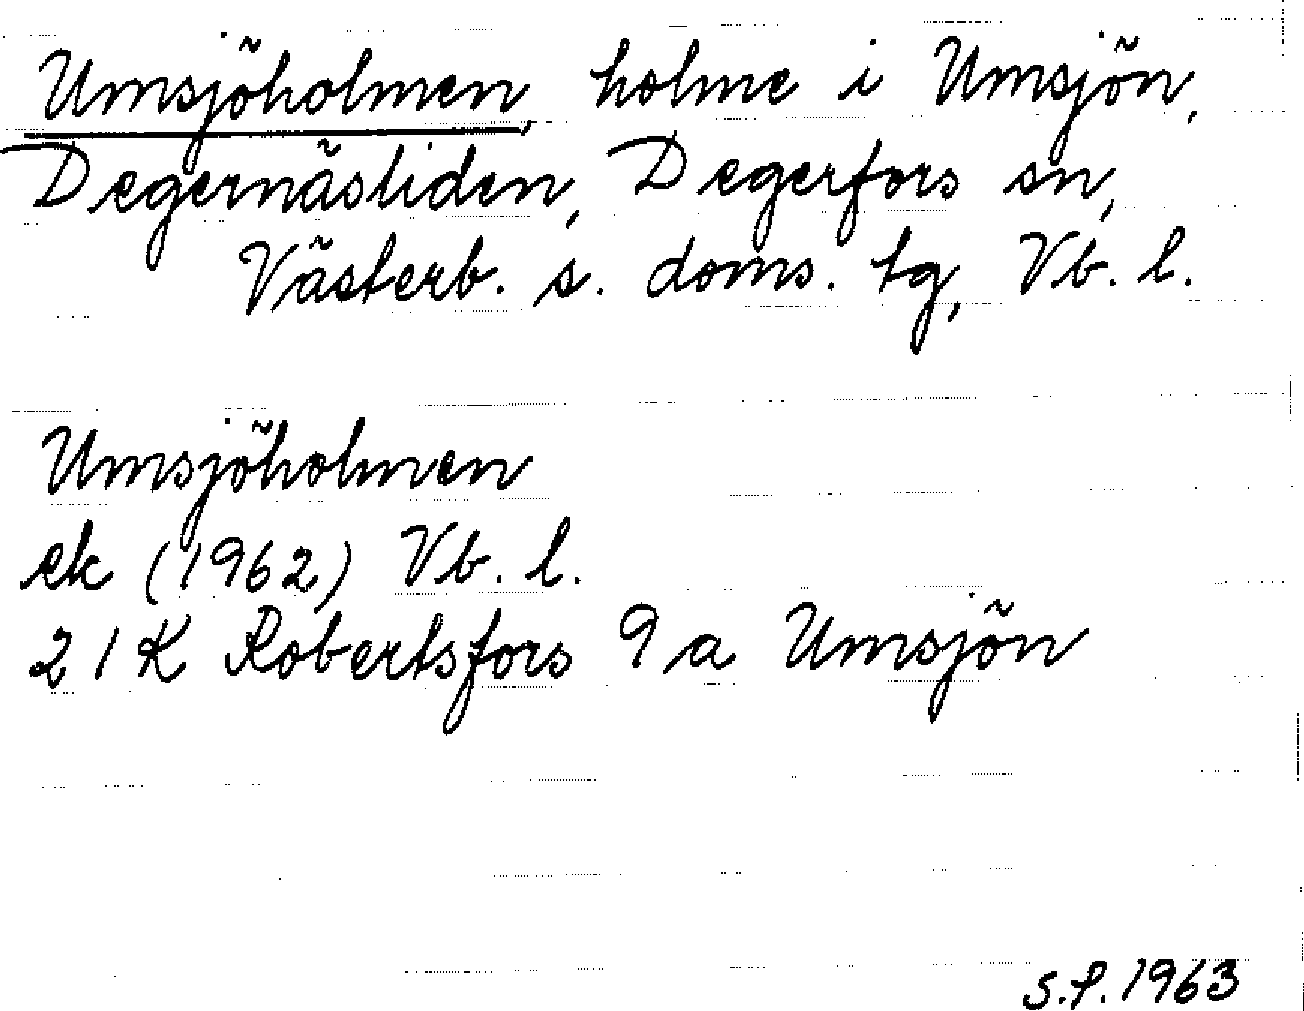 Umsjöholmen, holme i Umsjön,
Degernäsliden, Degerfors sn,
Västerb. s. doms. tg, Vb. l.
Umsjöholmen
ek (1962) Vb. l.
21K Robertsfors 9a Umsjön
S.P. 1963